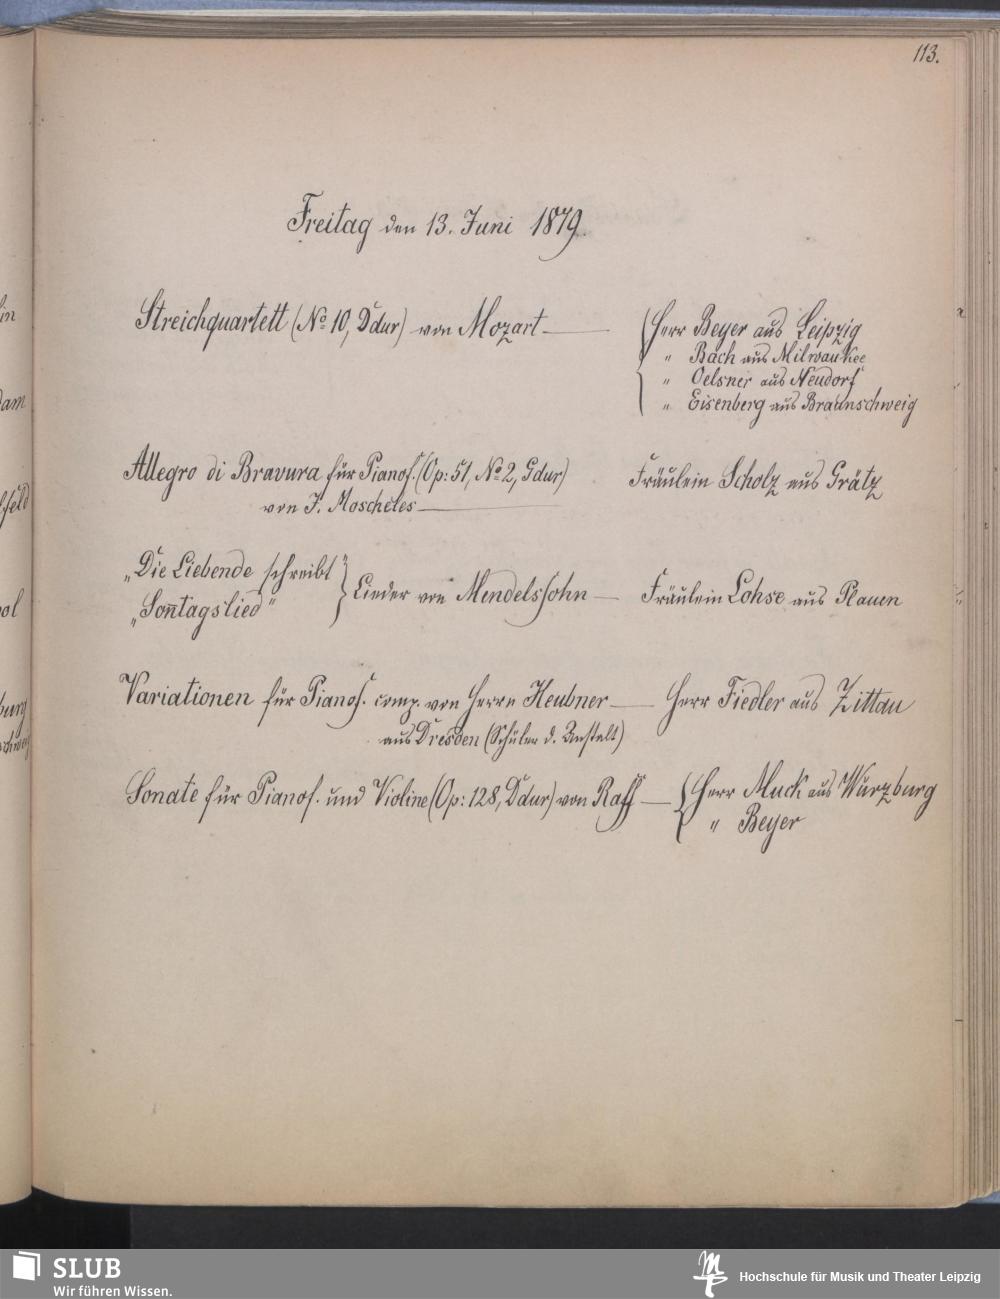 113.
Freitag den 13. Juni 1879.
Streichquartett (No 10, Ddur) von Mozart — Herr Beyer aus Leipzig
" Bach aus Milwaukee
" Oelsner aus Neudorf
" Eisenberg aus Braunschweig
Allegro di Bravura für Pianof. (Op: 51, No 2, Gdur) Fräulein Scholz aus Grätz
von J. Moscheles —
„Die Liebende schreibt"
„Sonntagslied" } Lieder von Mendelssohn — Fräulein Lohse aus Plauen
Variationen für Pianof. comp. von Herrn Heubner — Herr Fiedler aus Zittau
aus Dresden (Schüler d. Anstalt)
Sonate für Pianof. und Violine (Op: 128, Ddur) von Raff — { Herr Muck aus Würzburg
" Beyer
SLUB
Wir führen Wissen.
Hochschule für Musik und Theater Leipzig